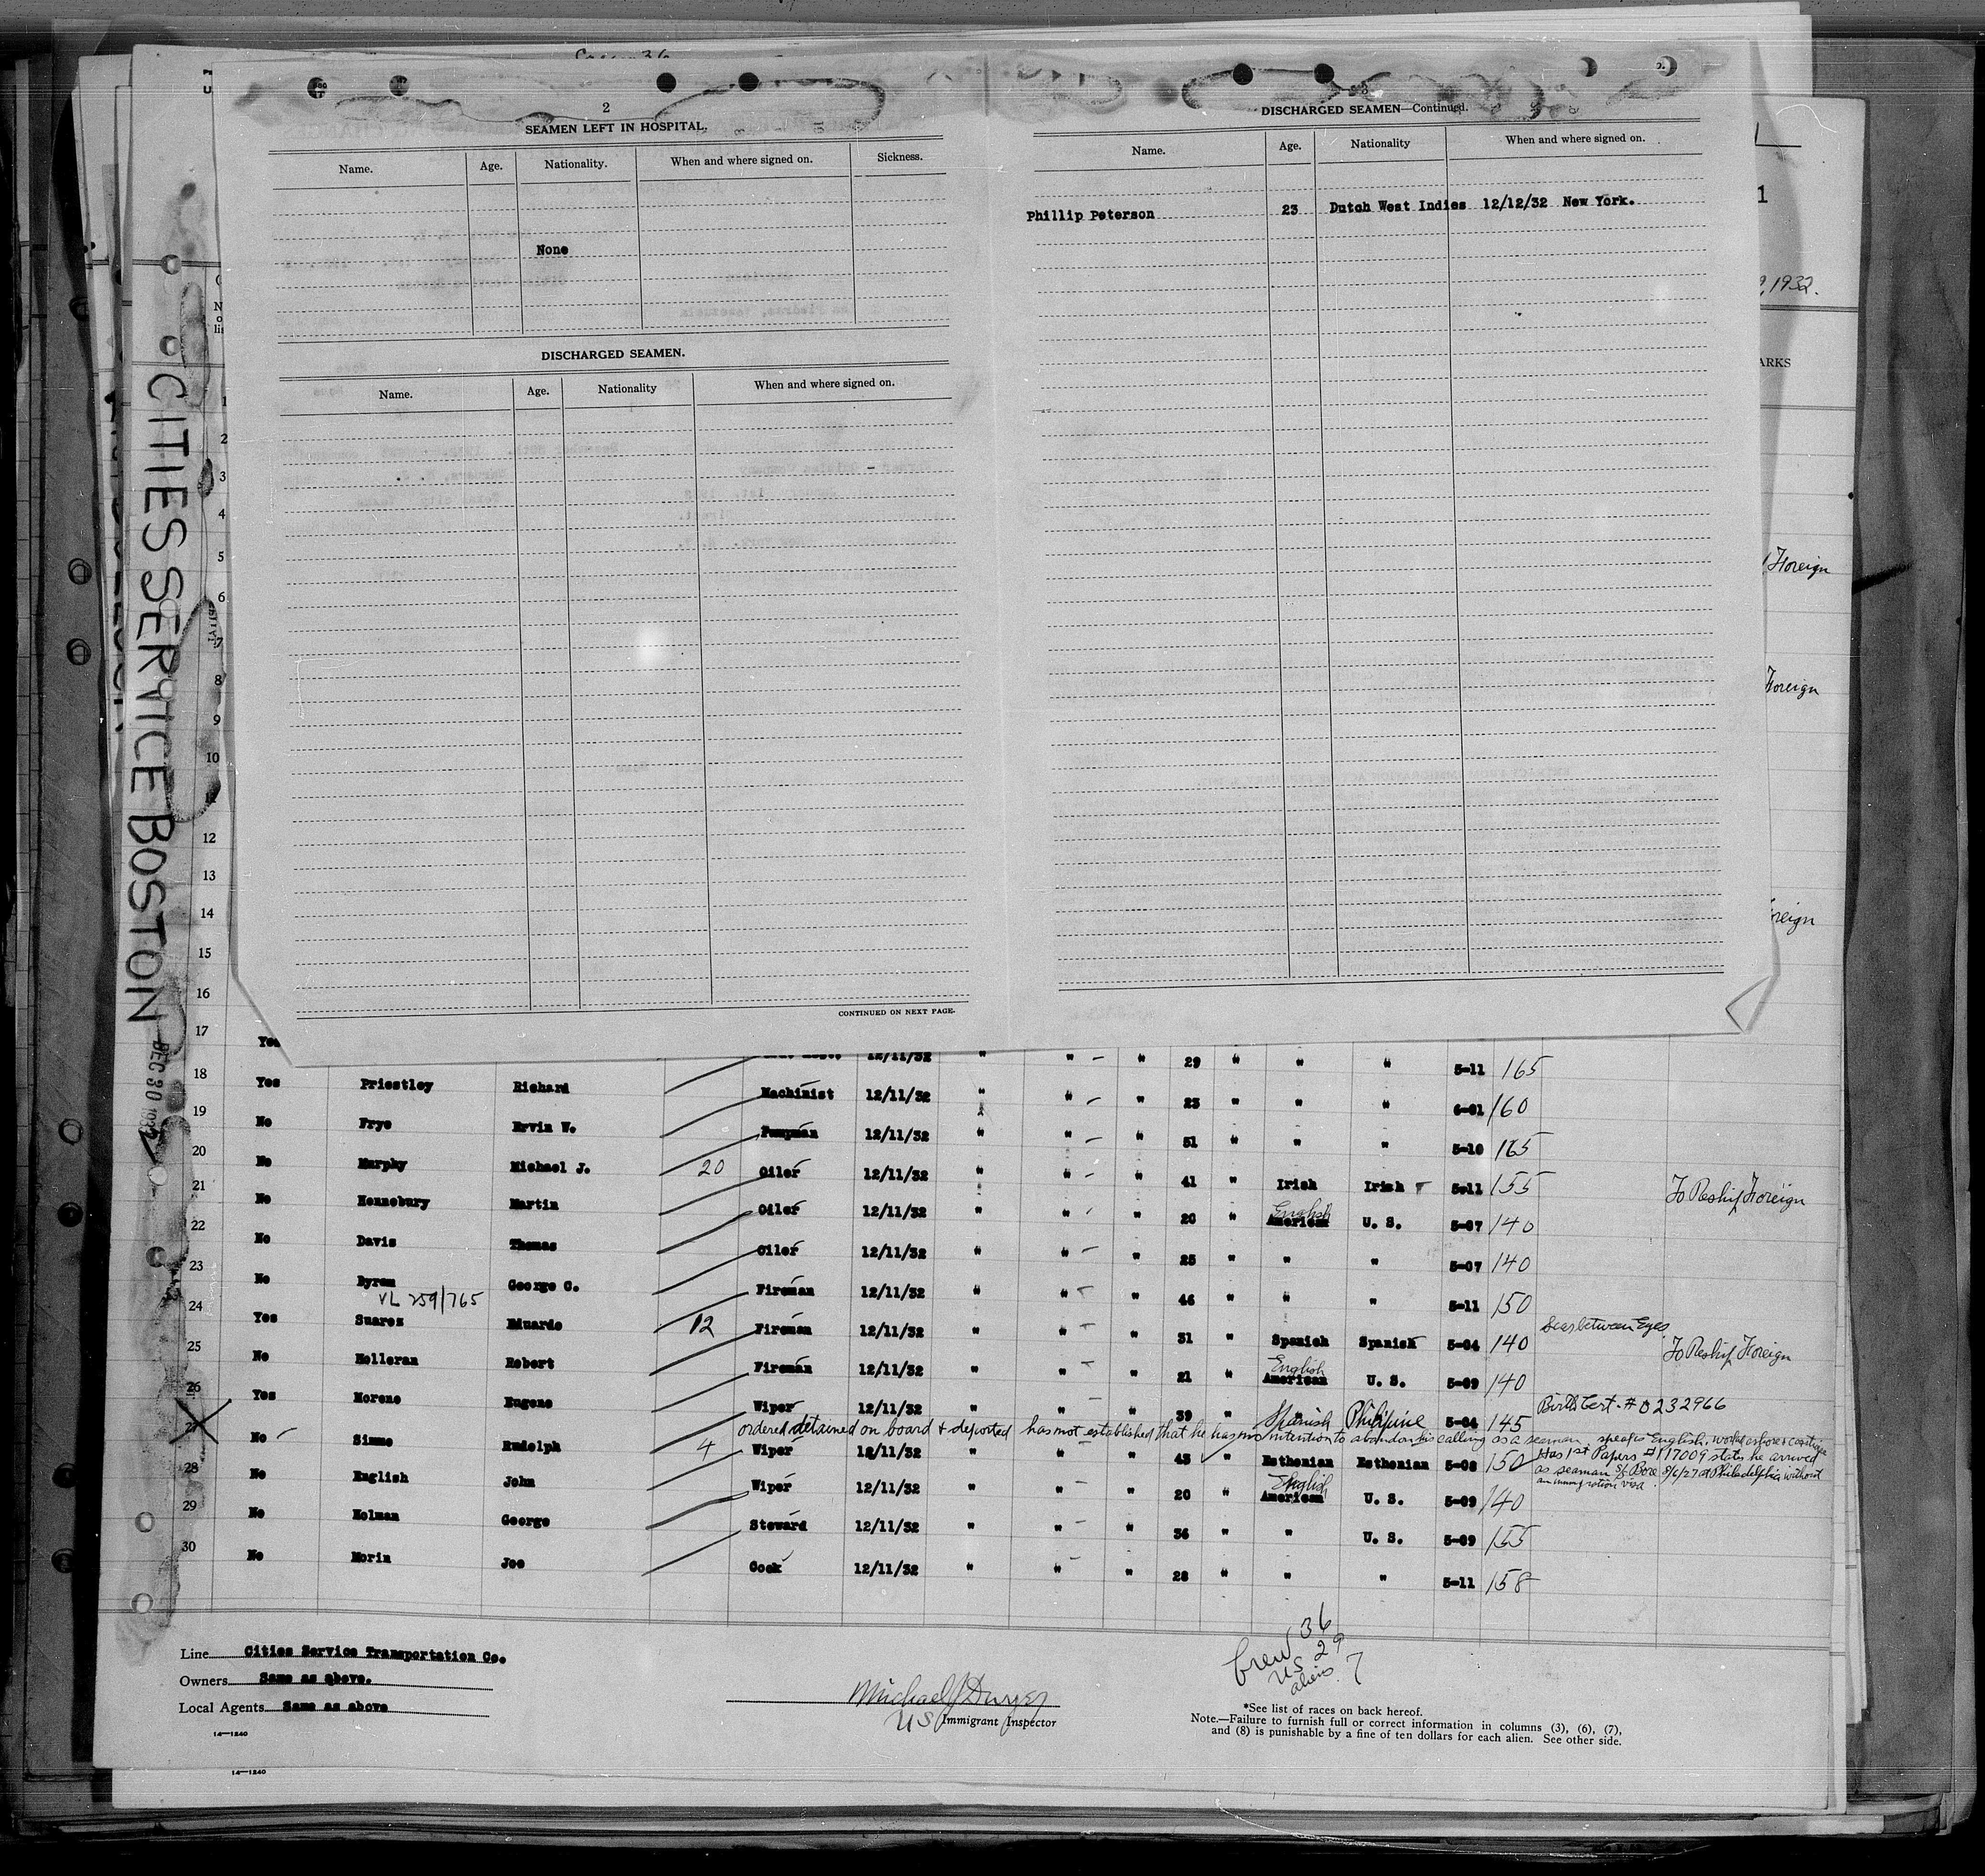 2
SEAMEN LEFT IN HOSPITAL.
Name. Age. Nationality. When and where signed on. Sickness.
None
DISCHARGED SEAMEN.
Name. Age. Nationality When and where signed on.
CONTINUED ON NEXT PAGE.
DISCHARGED SEAMEN—Continued.
Name. Age. Nationality When and where signed on.
Phillip Peterson 23 Dutch West Indies 12/12/32 New York.
1
, 1932.
ARKS
Foreign
Foreign
reign
CITIES SERVICE BOSTON
DEC 30 1932
1
2
3
4
5
6
7
8
9
10
11
12
13
14
15
16
17
Yes 12/11/32 " " — " 29 " " " 5-11 165
18 Yes Priestley Richard Machinist 12/11/32 " " — " 23 " " " 6-01 160
19 No Frye Ervin W. Pumpman 12/11/32 " " — " 51 " " " 5-10 165
20 No Murphy Michael J. 20 Oiler 12/11/32 " " — " 41 " Irish Irish 5-11 155 To Reship Foreign
21 No Hennebury Martin Oiler 12/11/32 " " " 20 " English American U. S. 5-07 140
22 No Davis Thomas Oiler 12/11/32 " " — " 25 " " " 5-07 140
23 No Byram George C. Fireman 12/11/32 " " — " 46 " " " 5-11 150
VL 259/765
24 Yes Suarez Eduardo 12 Fireman 12/11/32 " " — " 31 " Spanish Spanish 5-04 140 Scar between Eyes To Reship Foreign
25 No Holleran Robert Fireman 12/11/32 " " — " 21 " English American U. S. 5-09 140
26 Yes Moreno Eugene Wiper 12/11/32 " " — " 39 " Spanish Philipine 5-04 145 Birth Cert. # 0232966
ordered detained on board & deported has not established that he has no intention to abandon his calling as a seaman speaks English, worked ashore
27 No — Simmo Rudolph 4 Wiper 12/11/32 " " — " 43 " Esthonian Esthonian 5-08 150 Has 1st Papers #117009 states he arrived
as seaman S/S Bore 8/6/27 at Philadelphia without
an immigration visa.
28 No English John Wiper 12/11/32 " " — " 20 " English American U. S. 5-09 140
29 No Holman George Steward 12/11/32 " " — " 36 " " U. S. 5-09 155
30 No Morin Joe Cook 12/11/32 " " — " 28 " " " 5-11 158
Line Cities Service Transportation Co.
Owners Same as above.
Local Agents Same as above
14—1240
14—1240
Michael J Dwyer
US Immigrant Inspector
Crew 36
US 29
aliens 7
*See list of races on back hereof.
Note.—Failure to furnish full or correct information in columns (3), (6), (7),
and (8) is punishable by a fine of ten dollars for each alien. See other side.